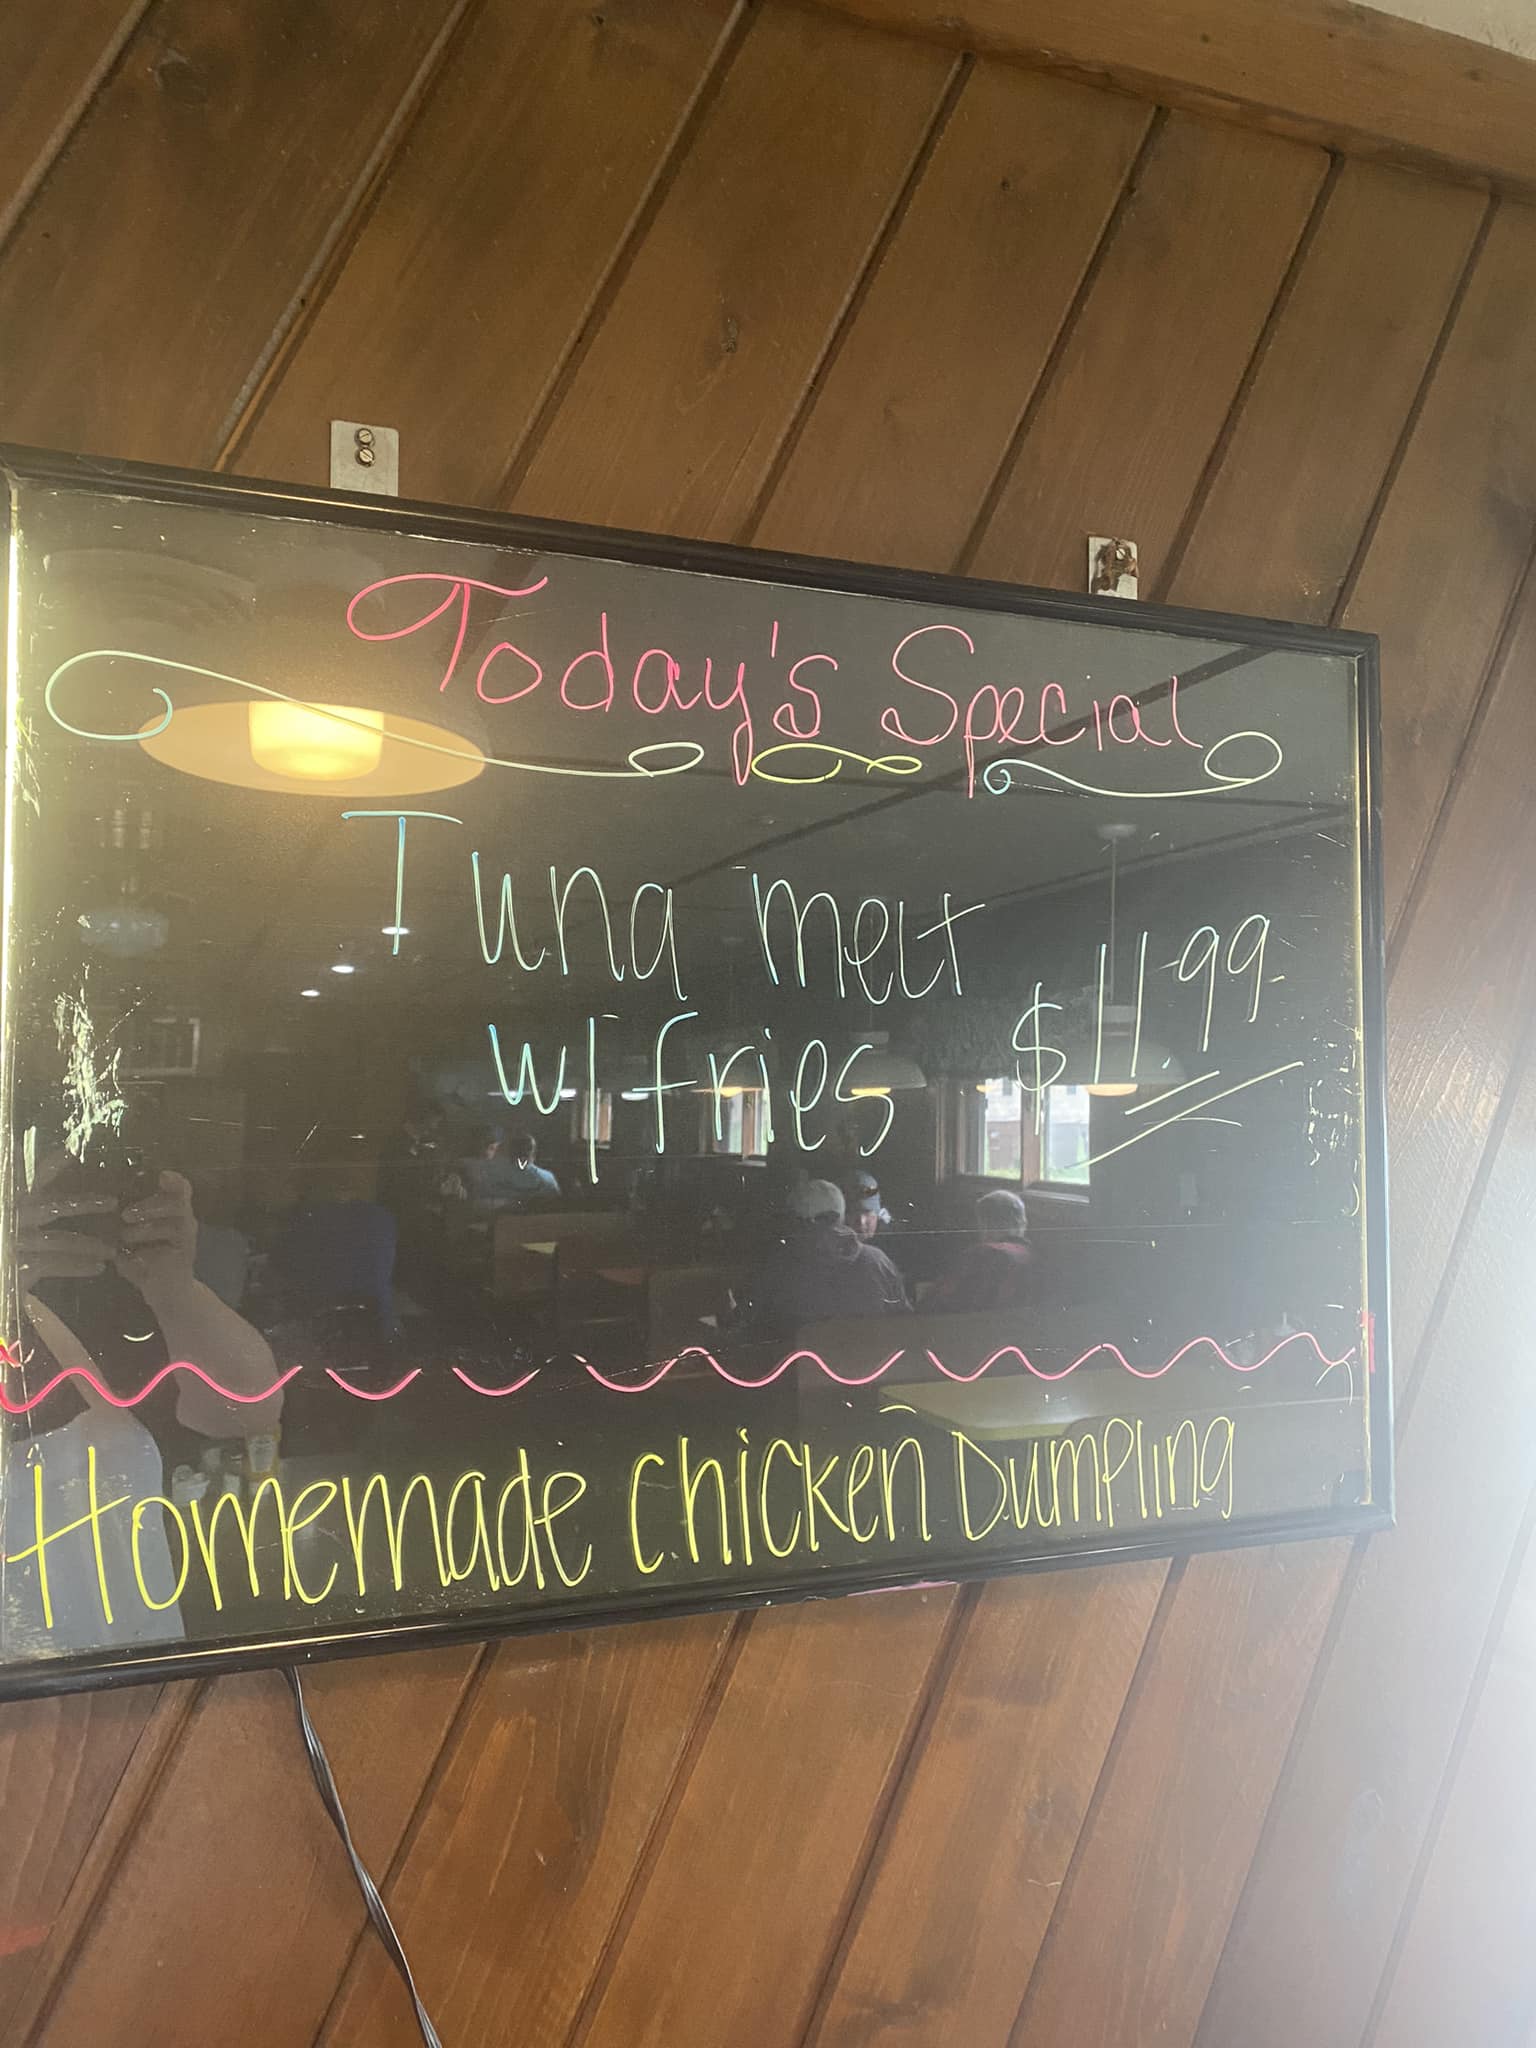 Today's Special
Tuna melt
w/fries $11.99
Homemade chicken Dumpling